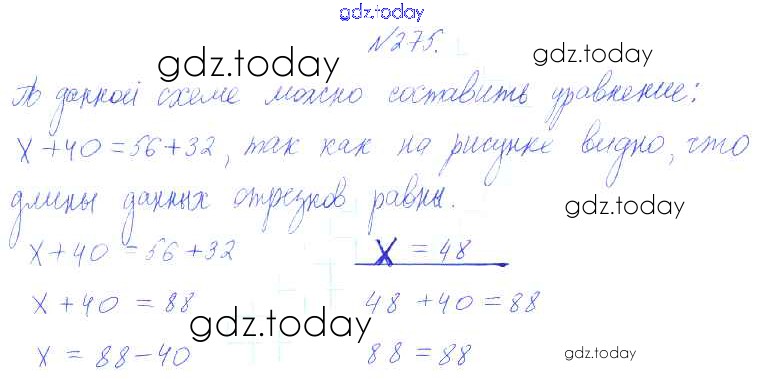 gdz.today
№275.
gdz.today
gdz.today
По данной схеме можно составить уравнение:
x+40=56+32, так как на рисунке видно, что
длины данных отрезков равны.
gdz.today
x+40=56+32
x+40=88
x=88-40
x=48
48+40=88
88=88
gdz.today
gdz.today